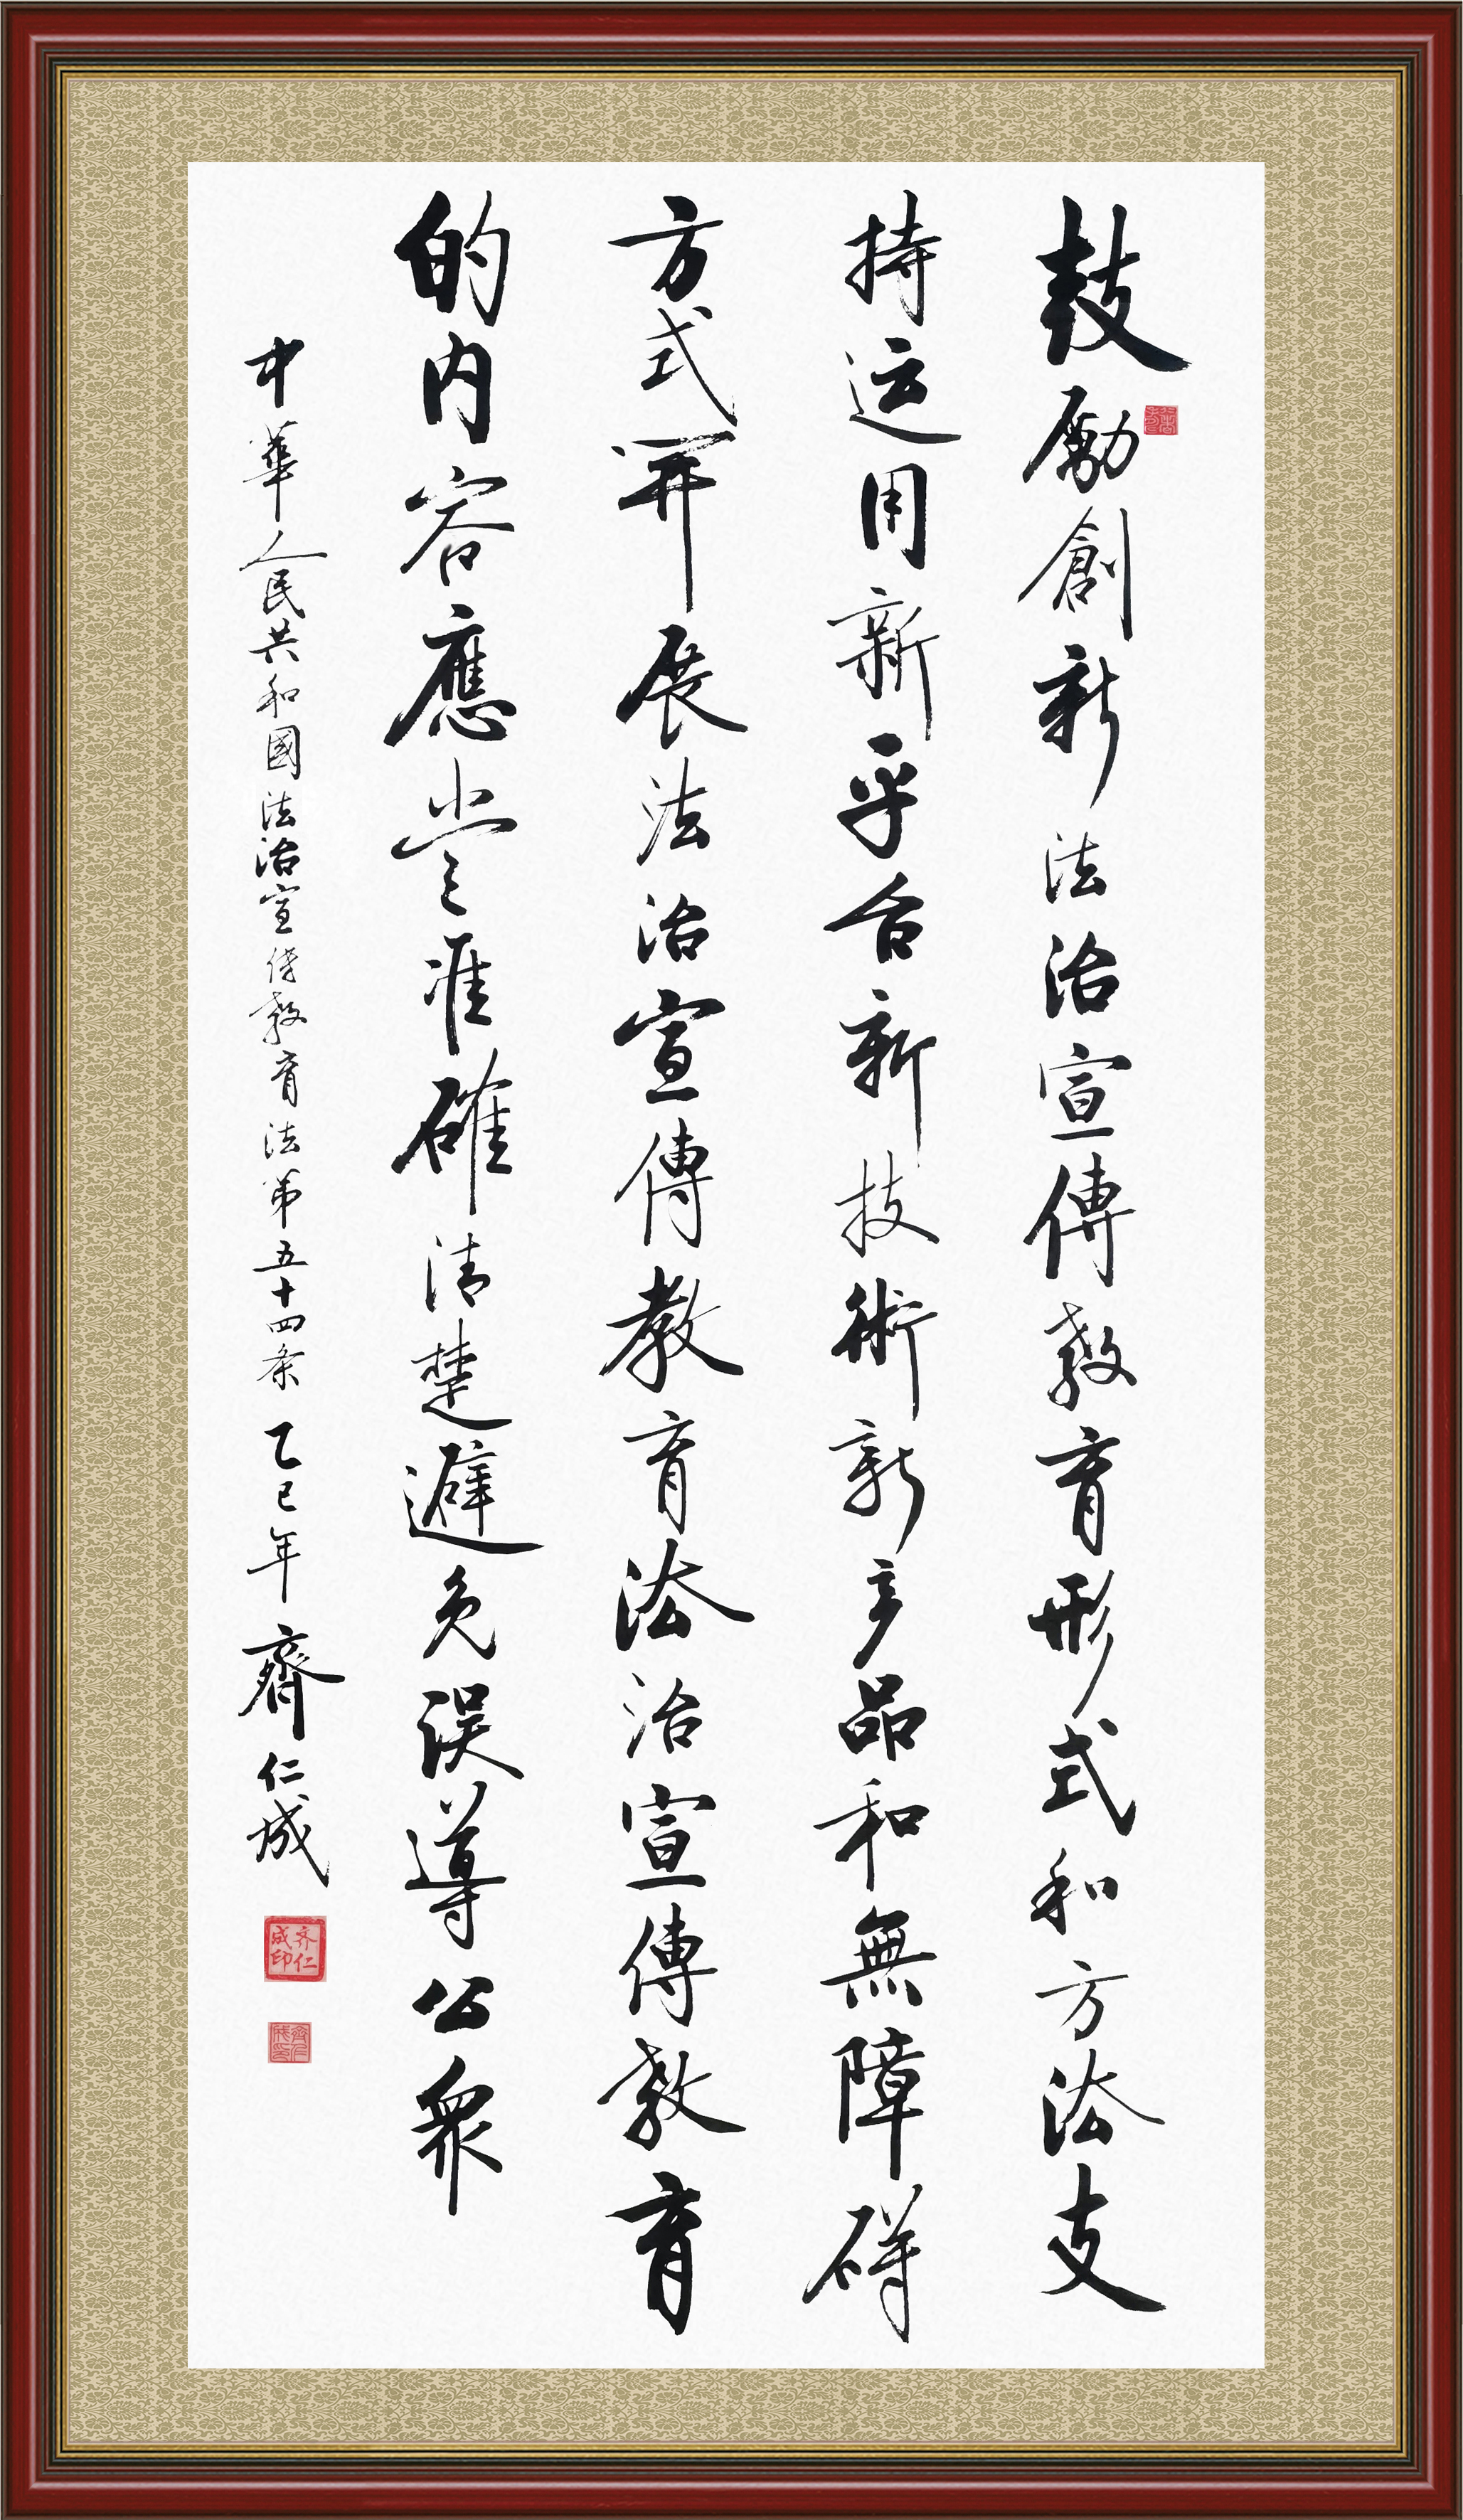 鼓勵創新法治宣傳教育形式和方法支
持运用新平台新技術新产品和無障碍
方式開展法治宣傳教育法治宣傳教育
的内容應當准確清楚避免误導公衆
中華人民共和國法治宣传教育法第五十四条 乙巳年 齊仁成
齐仁成印